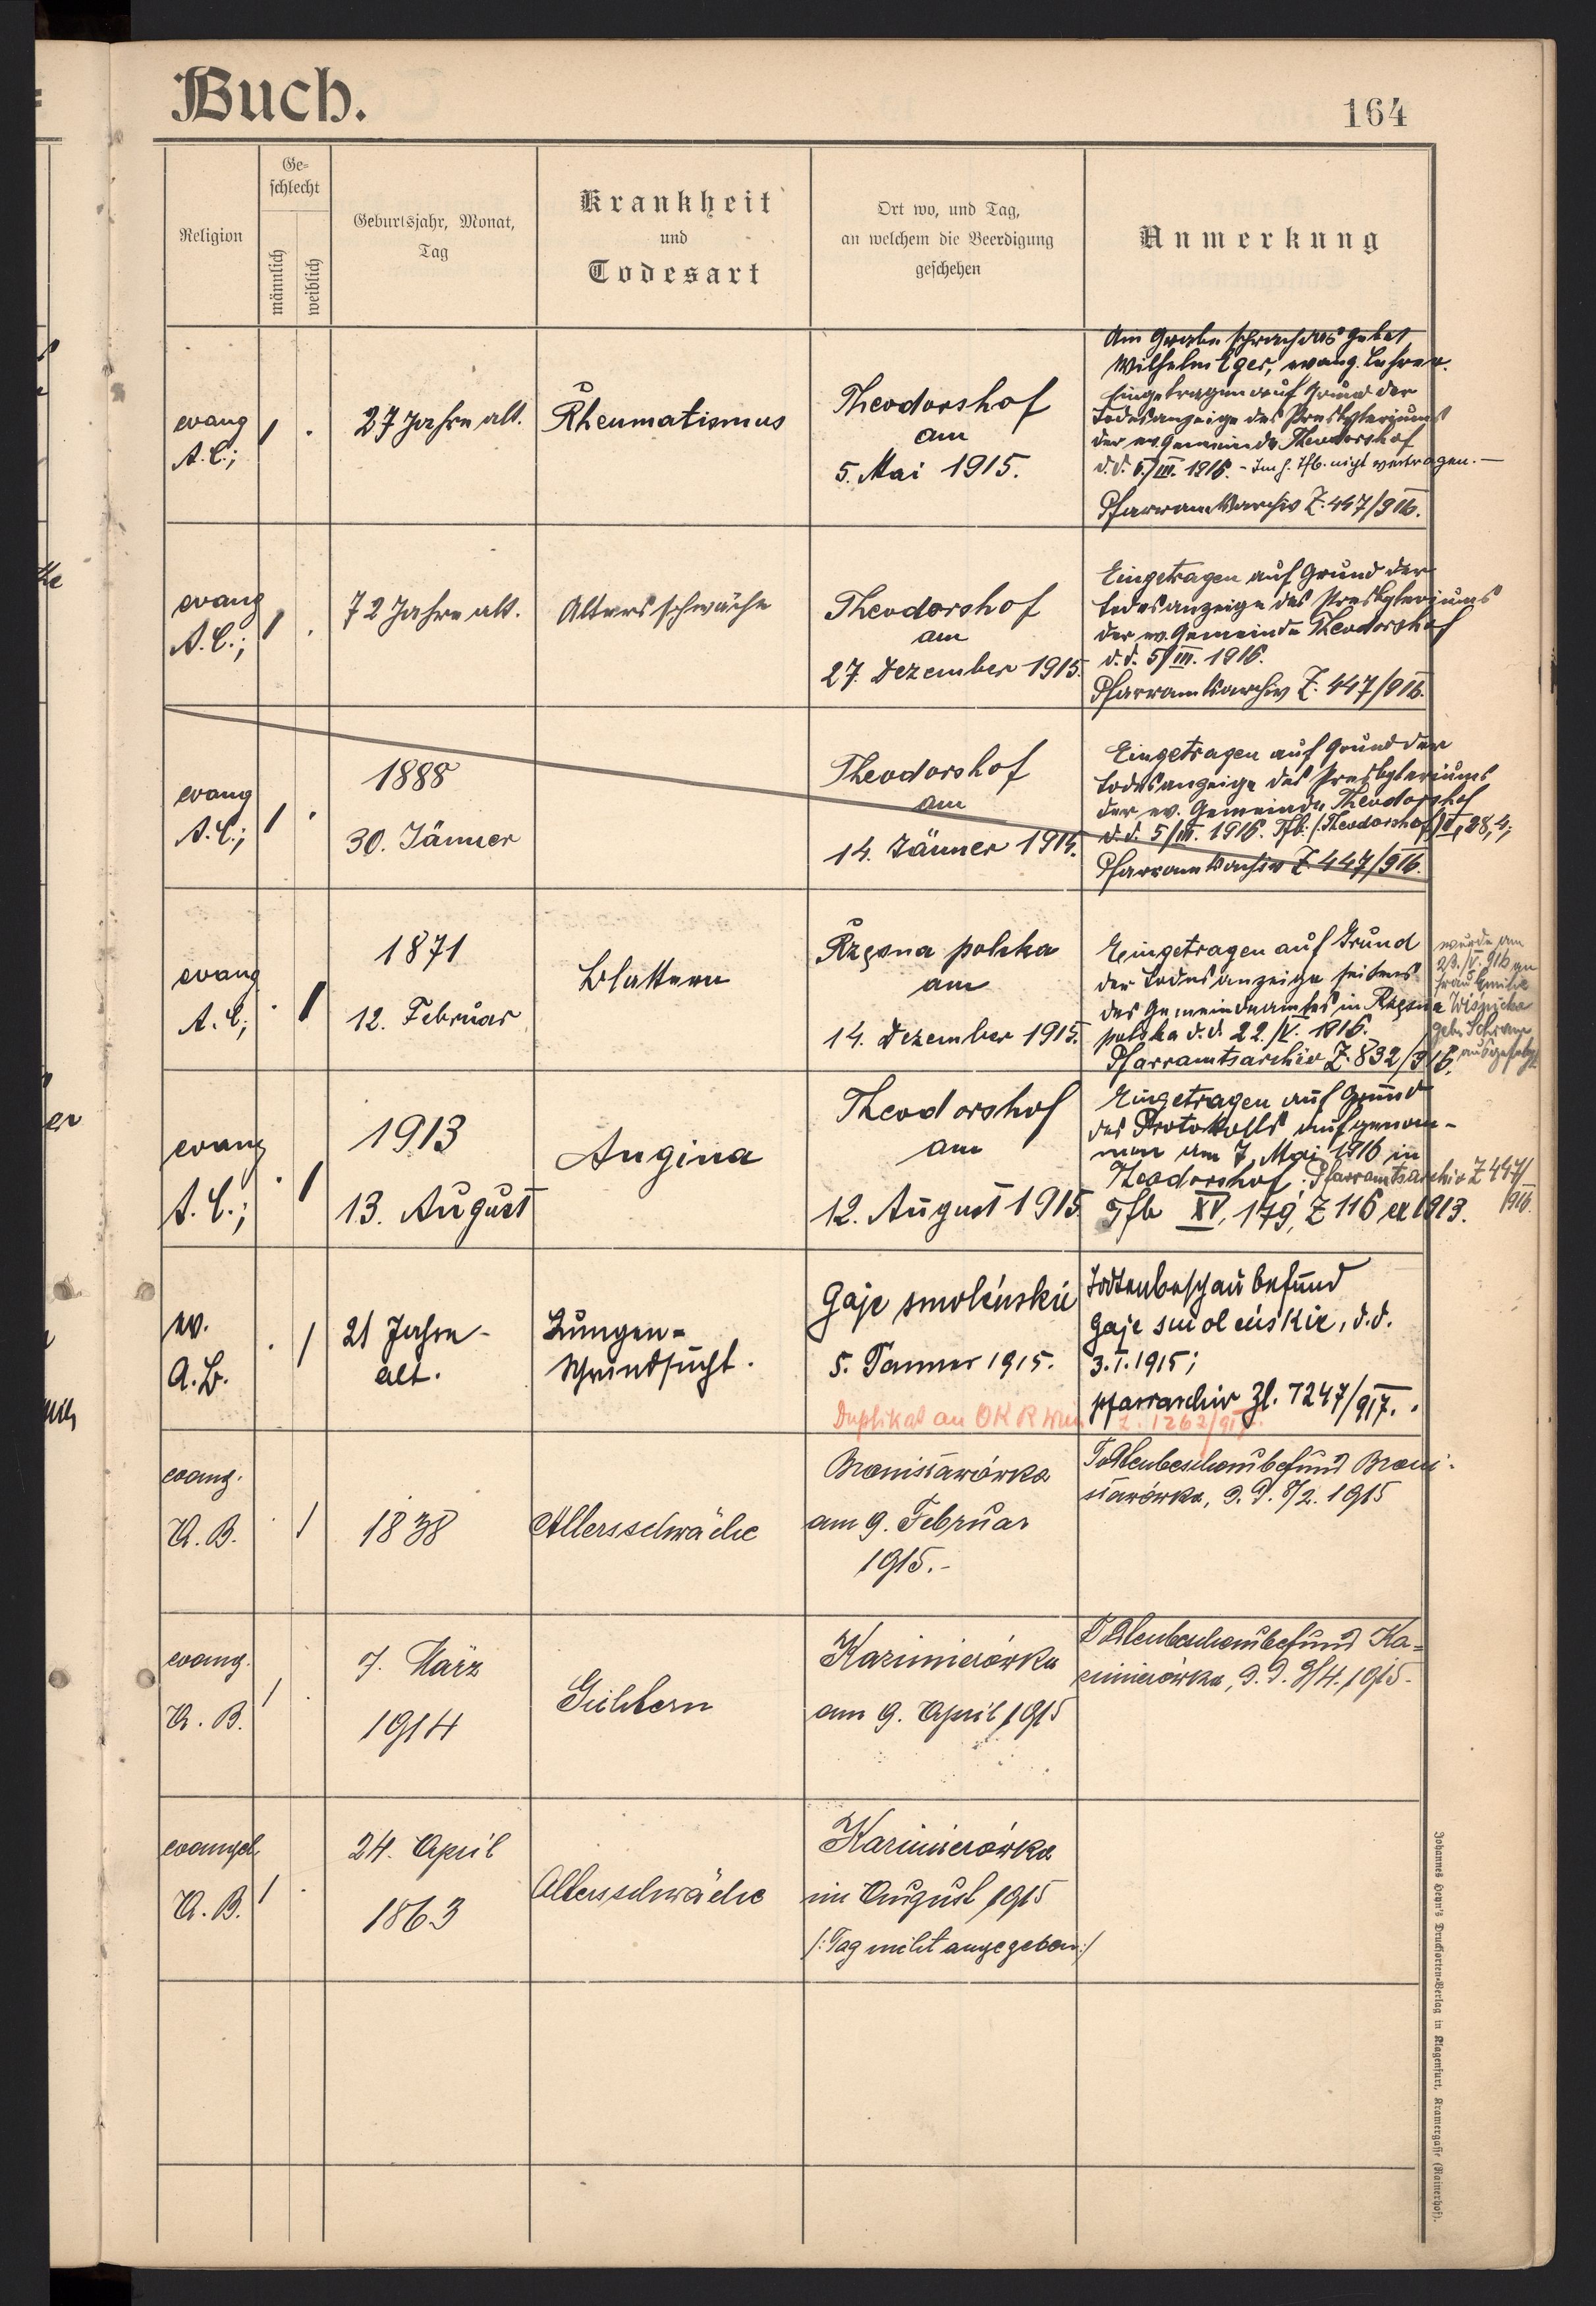 Buch.
164
Religion
Ge-
schlecht
männlich
weiblich
Geburtsjahr, Monat,
Tag
Krankheit
und
Todesart
Ort wo, und Tag,
an welchem die Beerdigung
geschehen
Anmerkung
evang
A.C.;
27 Jahre alt.
Rheumatismus
Theodorshof
am
5. Mai 1915.
Am Grabe sprach das Gebet
Wilhelm Eger, evang. Lehrer.
Eingetragen auf Grund der
Todesanzeige des Presbyteriums
der ev. Gemeinde Theodorshof
d.d. 5/III. 1916. - Im h. Tfb. nicht
Pfarramtsarchiv Z. 447/916.
evang
A.C.;
72 Jahre alt.
Altersschwäche
Theodorshof
am
27. Dezember 1915.
Eingetragen auf Grund der
Todesanzeige des Presbyteriums
der ev. Gemeinde Theodorshof
d.d. 5/III. 1916.
Pfarramtsarchiv Z. 447/916.
evang
A.C.;
1888
30. Jänner
Theodorshof
am
14. Jänner 1915.
Eingetragen auf Grund der
Todesanzeige des Presbyteriums
der ev. Gemeinde Theodorshof
d.d. 5/III. 1916. Tfb. /:Theodorshof/ 28,4;
Pfarramtsarchiv Z. 447/916.
evang
A.C;
1871
12. Februar
Blattern
Rzęsna polska
am
14. Dezember 1915.
Eingetragen auf Grund
der Todesanzeige seitens
des Gemeindeamtes in Rzęsna
polska d.d. 22./V. 1916.
Pfarramtsarchiv Z. 832/916.
wurde am
23./V. 916 an
Frau Emilie
geb. Schram
ausgefolgt
evang
A.C.;
1913
13. August
Angina
Theodorshof
am
12. August 1915
Eingetragen auf Grund
des Protokolls aufgenom-
men am 7. Mai 1916 in
Theodorshof. Pfarramtsarchiv Z 447/
916.
Tfb XV, 179, Z 116 ex 1913.
ev.
A.B.
21 Jahre
alt.
Lungen-
schwindsucht.
Gaje smoleńskie
5. Jänner 1915.
Duplikat an OKR Wien Z. 1262/917.
Todtenbeschaubefund
Gaje smoleńskie, d.d.
3.I.1915;
Pfarrarchiv Zl. 1247/917.
evang.
A. B.
1838
Altersschwäche
Bronisławówka
am 9. Februar
1915.-
Todtenbeschaubefund Broni-
sławówka, d.d. 8/2. 1915
evang.
A. B.
7. März
1914
Kazimierówka
am 9. April 1915
Todtenbeschaubefund Ka-
zimierówka, d.d. 9/4. 1915.
evangel.
A. B.
24. April
1863
Altersschwäche
Kazimierówka
im August 1915
/:Tag nicht angegeben:/
Johannes Heyn's Drucksorten-Verlag in Klagenfurt, Kramergasse (Rainerhof).